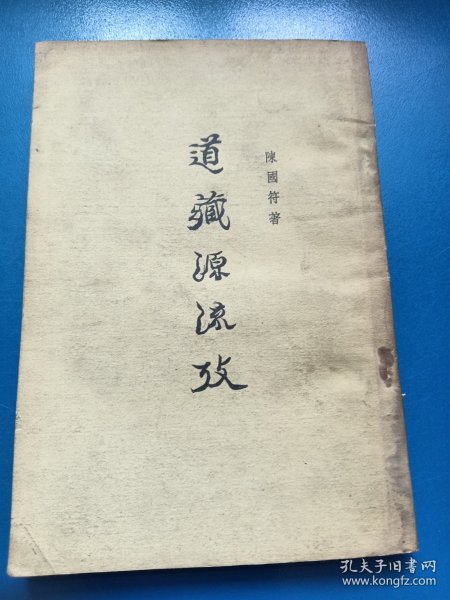 陳國符著
道藏源流攷
孔夫子旧书网
www.kongfz.com